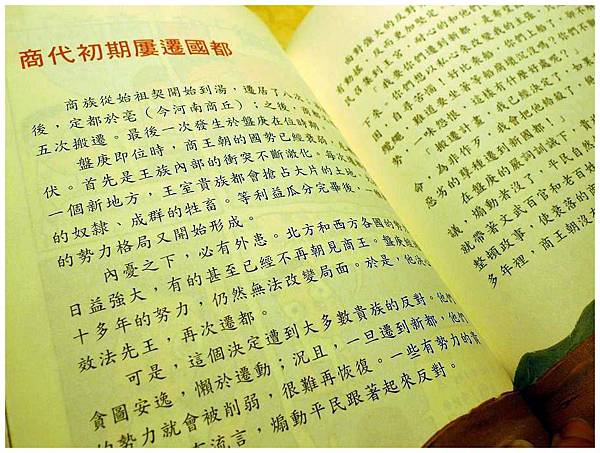 商代初期屢遷國都
商族從始祖契開始到湯，遷居了八次
後，定都於亳（今河南商丘）；之後，商
五次搬遷。最後一次發生於盤庚在位時期
盤庚即位時，商王朝的國勢已經衰弱
伏。首先是王族內部的衝突不斷激化。每次
一個新地方，王室貴族都會搶占大片的土地
的奴隸、成群的牲畜。等利益瓜分完畢後，
的勢力格局又開始形成。
內憂之下，必有外患。北方和西方各國的勢
日益強大，有的甚至已經不再朝見商王。盤庚經
十多年的努力，仍然無法改變局面。於是，他決
效法先王，再次遷都。
可是，這個決定遭到大多數貴族的反對。他們
貪圖安逸，懶於遷動；況且，一旦遷到新都，他們
的勢力就會被削弱，很難再恢復。一些有勢力的貴
流言，煽動平民跟著起來反對。
面對強大的反對
有動搖
召集到王宮，
「我要你們遷到新都，是
你們想以私心來改變我的主張
自尋苦惱！好比乘船，你們上船了，
難道要坐等著船腐壞沉沒嗎？
一味怨恨，這樣有什麼好處呢？
搬遷計畫，我已經決定了，
為非作歹，我就會把他給殺了，
命，
惡劣的孽種遷到新國都！」
在盤庚的嚴詞訓誡下，貴
議，煽動者沒了，平民自然
就帶著文武百官和老百姓
整頓政事，使衰落的商
多年裡，商王朝沒